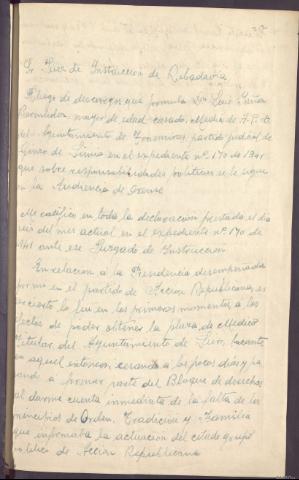 Sr Juez de Instrucción de Ribadavia
Pliego de descargos que formula Dn
mayor de edad casado, Medico de A.P.D.
del Ayuntamiento de partido judicial de
Ginzo de Limia en el expediente nº 170 de 1941
que sobre responsabilidades politicas se le sigue
en la Audiencia de Orense
Me ratifico en toda la declaración prestada el dia
seis del mes actual en el expediente nº 170 de
1941 ante ese Juzgado de Instrucción
En relacion a la Presidencia desempeñada
por mi en el partido de Accion Republicana, es
cierto lo fui en los primeros momentos a los
efectos de poder obtener la plaza de Medico
Titular del Ayuntamiento de vacante
en aquel entonces, cesando a los pocos dias y pa
sando a formar parte del Bloque de derechas
al darme cuenta inmediata de la falta de los
principios de Orden, Tradicion y Familia
que informaba la actuacion del citado grupo
politico de Accion Republicana